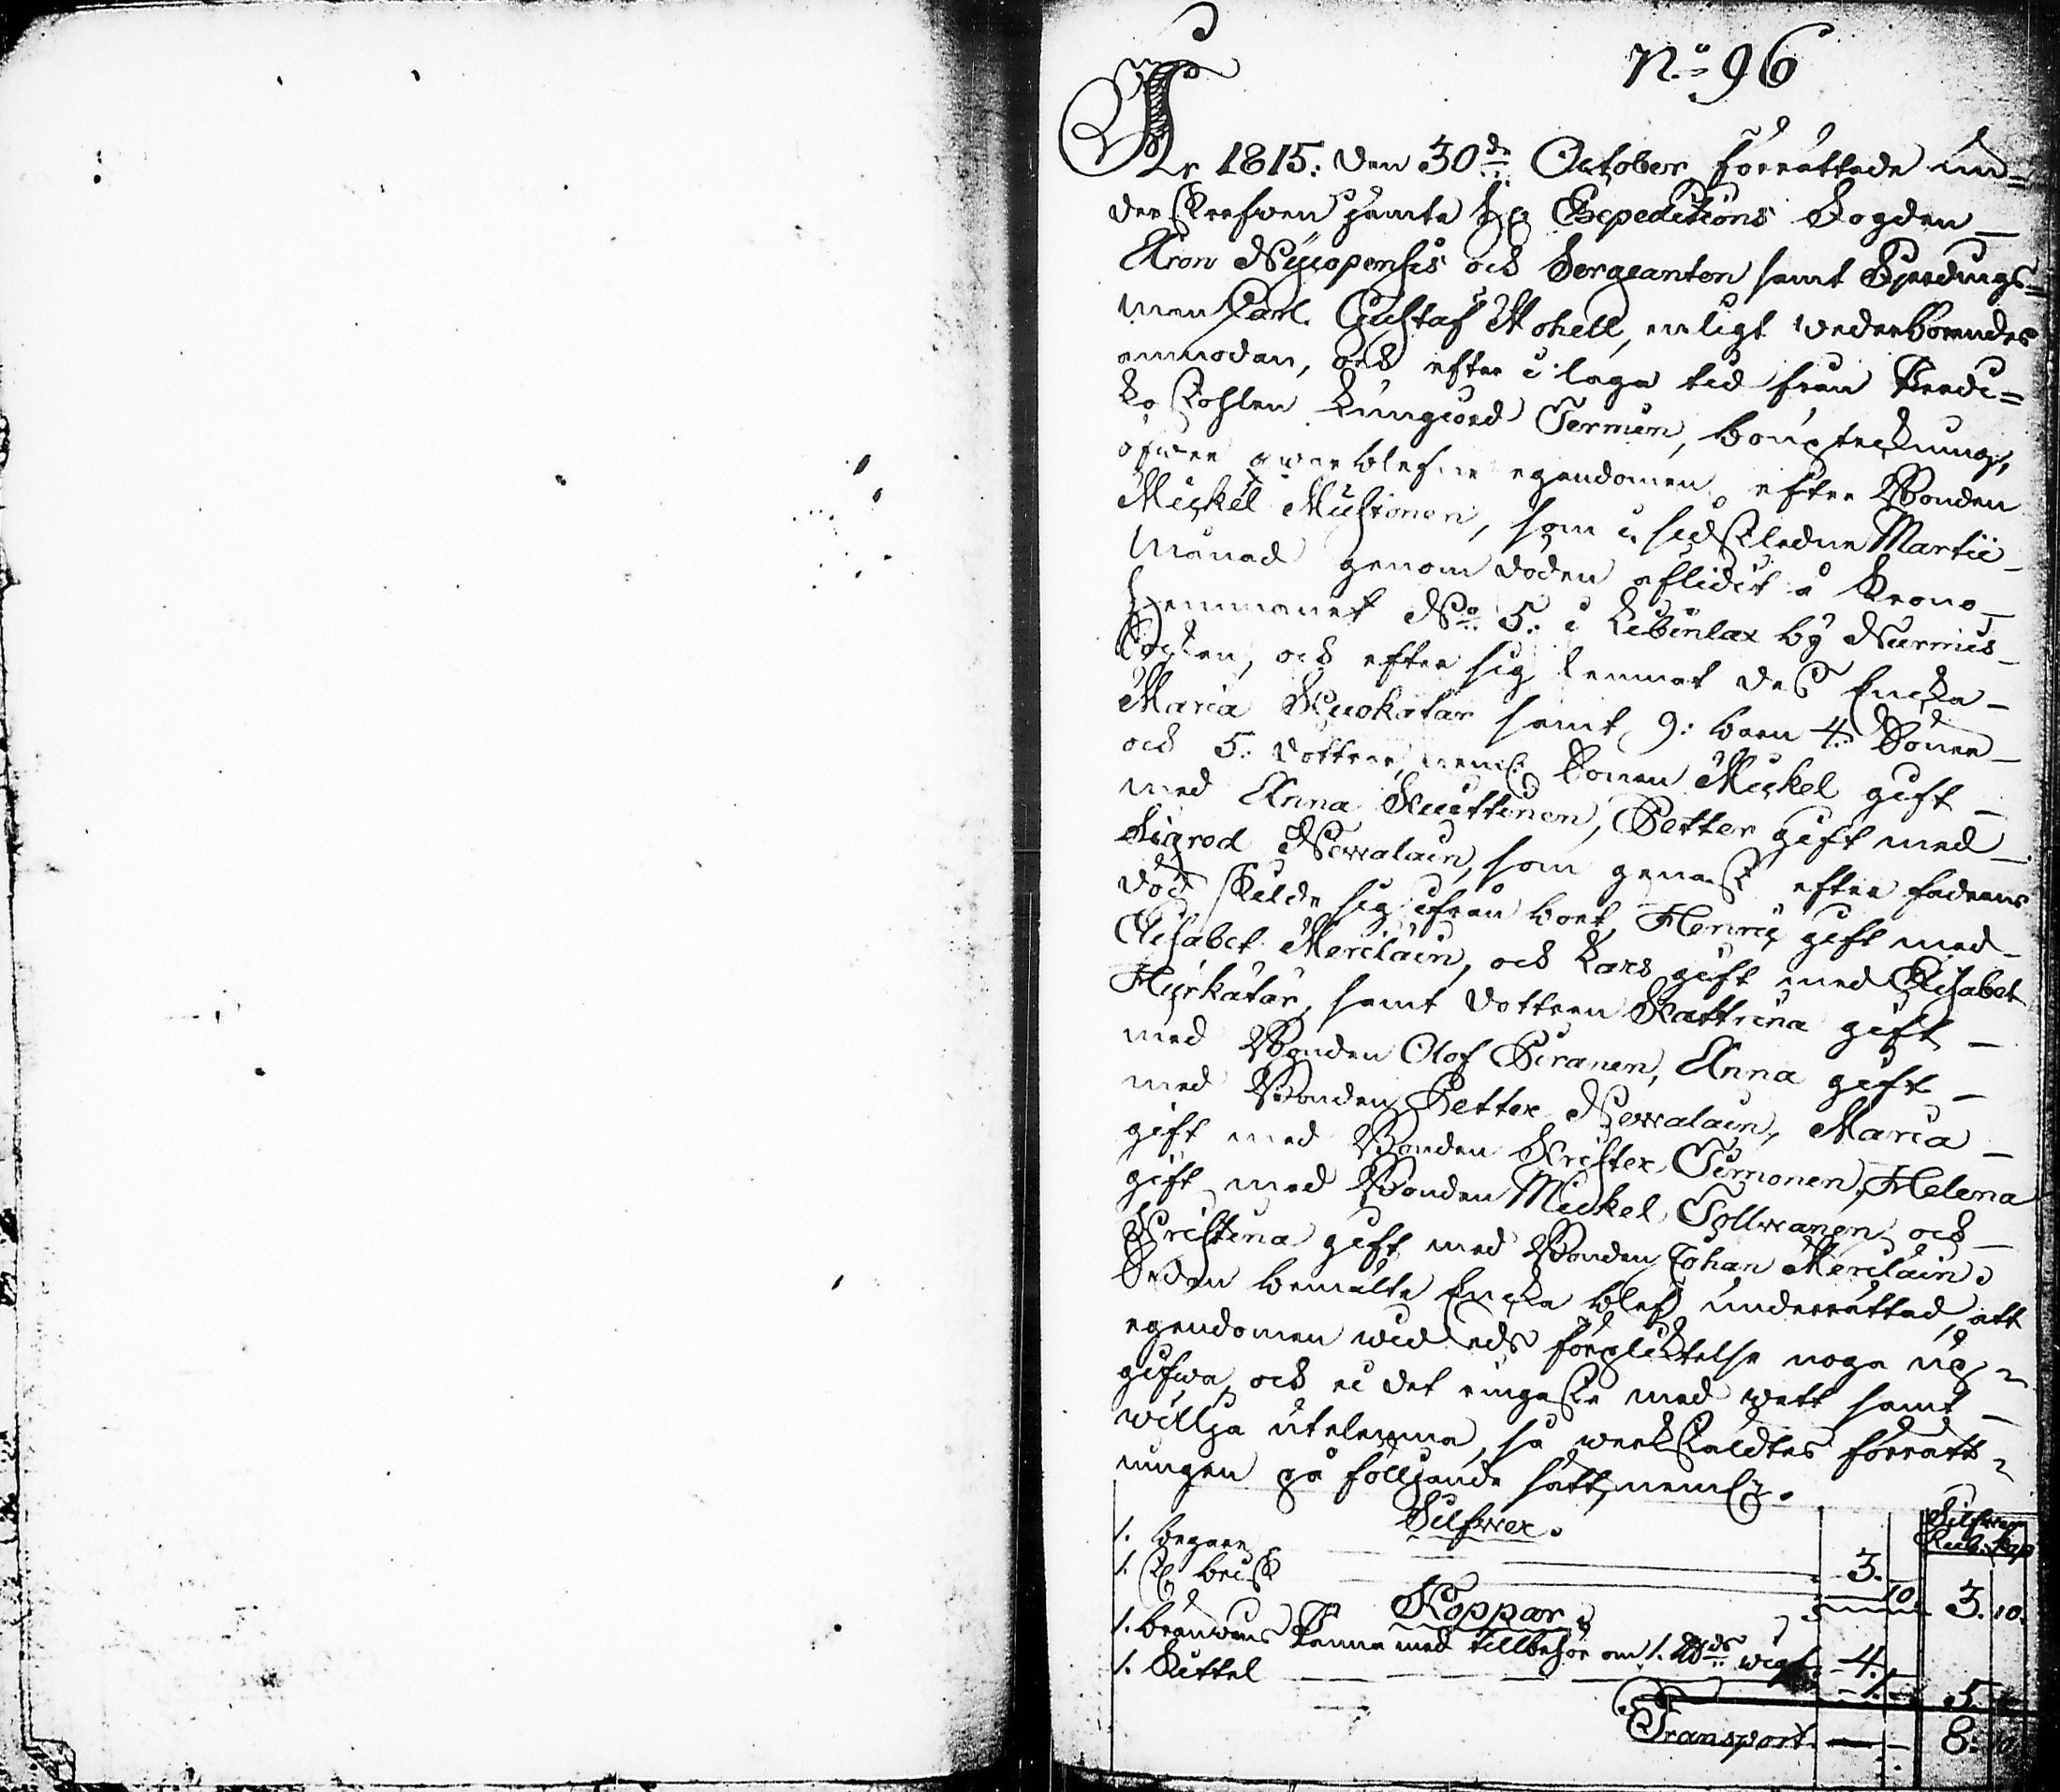 No 96
År 1815: den 30de October förrättade un=
derskrefwen jämte Expeditions Fogden
Aron Nycopensis och Sergeanten samt Fjerdings=
man Carl Gustaf Mohell, enligt wederbörandes
anmodan, och efter i laga tid från Predi=
ko Stohlen kungiord Termin, bouptekning,
öfwer qwarblefne egendomen, efter Bonden
Mickel Mustonen, som i sidstledne Martii
Månad genom döden aflidit å Krono
Hemmanet No 5: i Libinlax by Nurmis
Sockn, och efter sig lemnat dess Encka
Maria Kuokatar samt 9: barn 4: Söner
och 5: döttrar, neml: Sonen Mickel gift
med Anna Kuittinen, Petter gift med
Sigred Newalain, som genast efter fadrens
död skilde sig ifrån bort, Henric gift med
Elisabet Meriläin, och Lars gift med Elisabet
Hurkatar, samt dottren Kattrina gift
med Bonden Olof Piranen, Anna gift
med Bonden Petter Newalain, Maria
gift med Bonden Krister Timonen, Helena
gift med Bonden Mickel Tollwanen, och
Kristina gift med Bonden Johan Meriläin;
Sedan bemälte Encka blef underrättad, att
egendomen wid eds förplicktelse noga up=
gifwa, och ei det ringaste med wett samt
willja utelemna, så werkstäldtes förrätt=
ningen på följande sätt, neml:
Silfwer. Silfwer
Rub: Kop
1. bägare 3.
1. brisk 10 3. 10.
Koppar
1. bränwins Panna med tillbehör om 1. wigt 4.
1. Kittel 1. 5.
Transport 8: 10